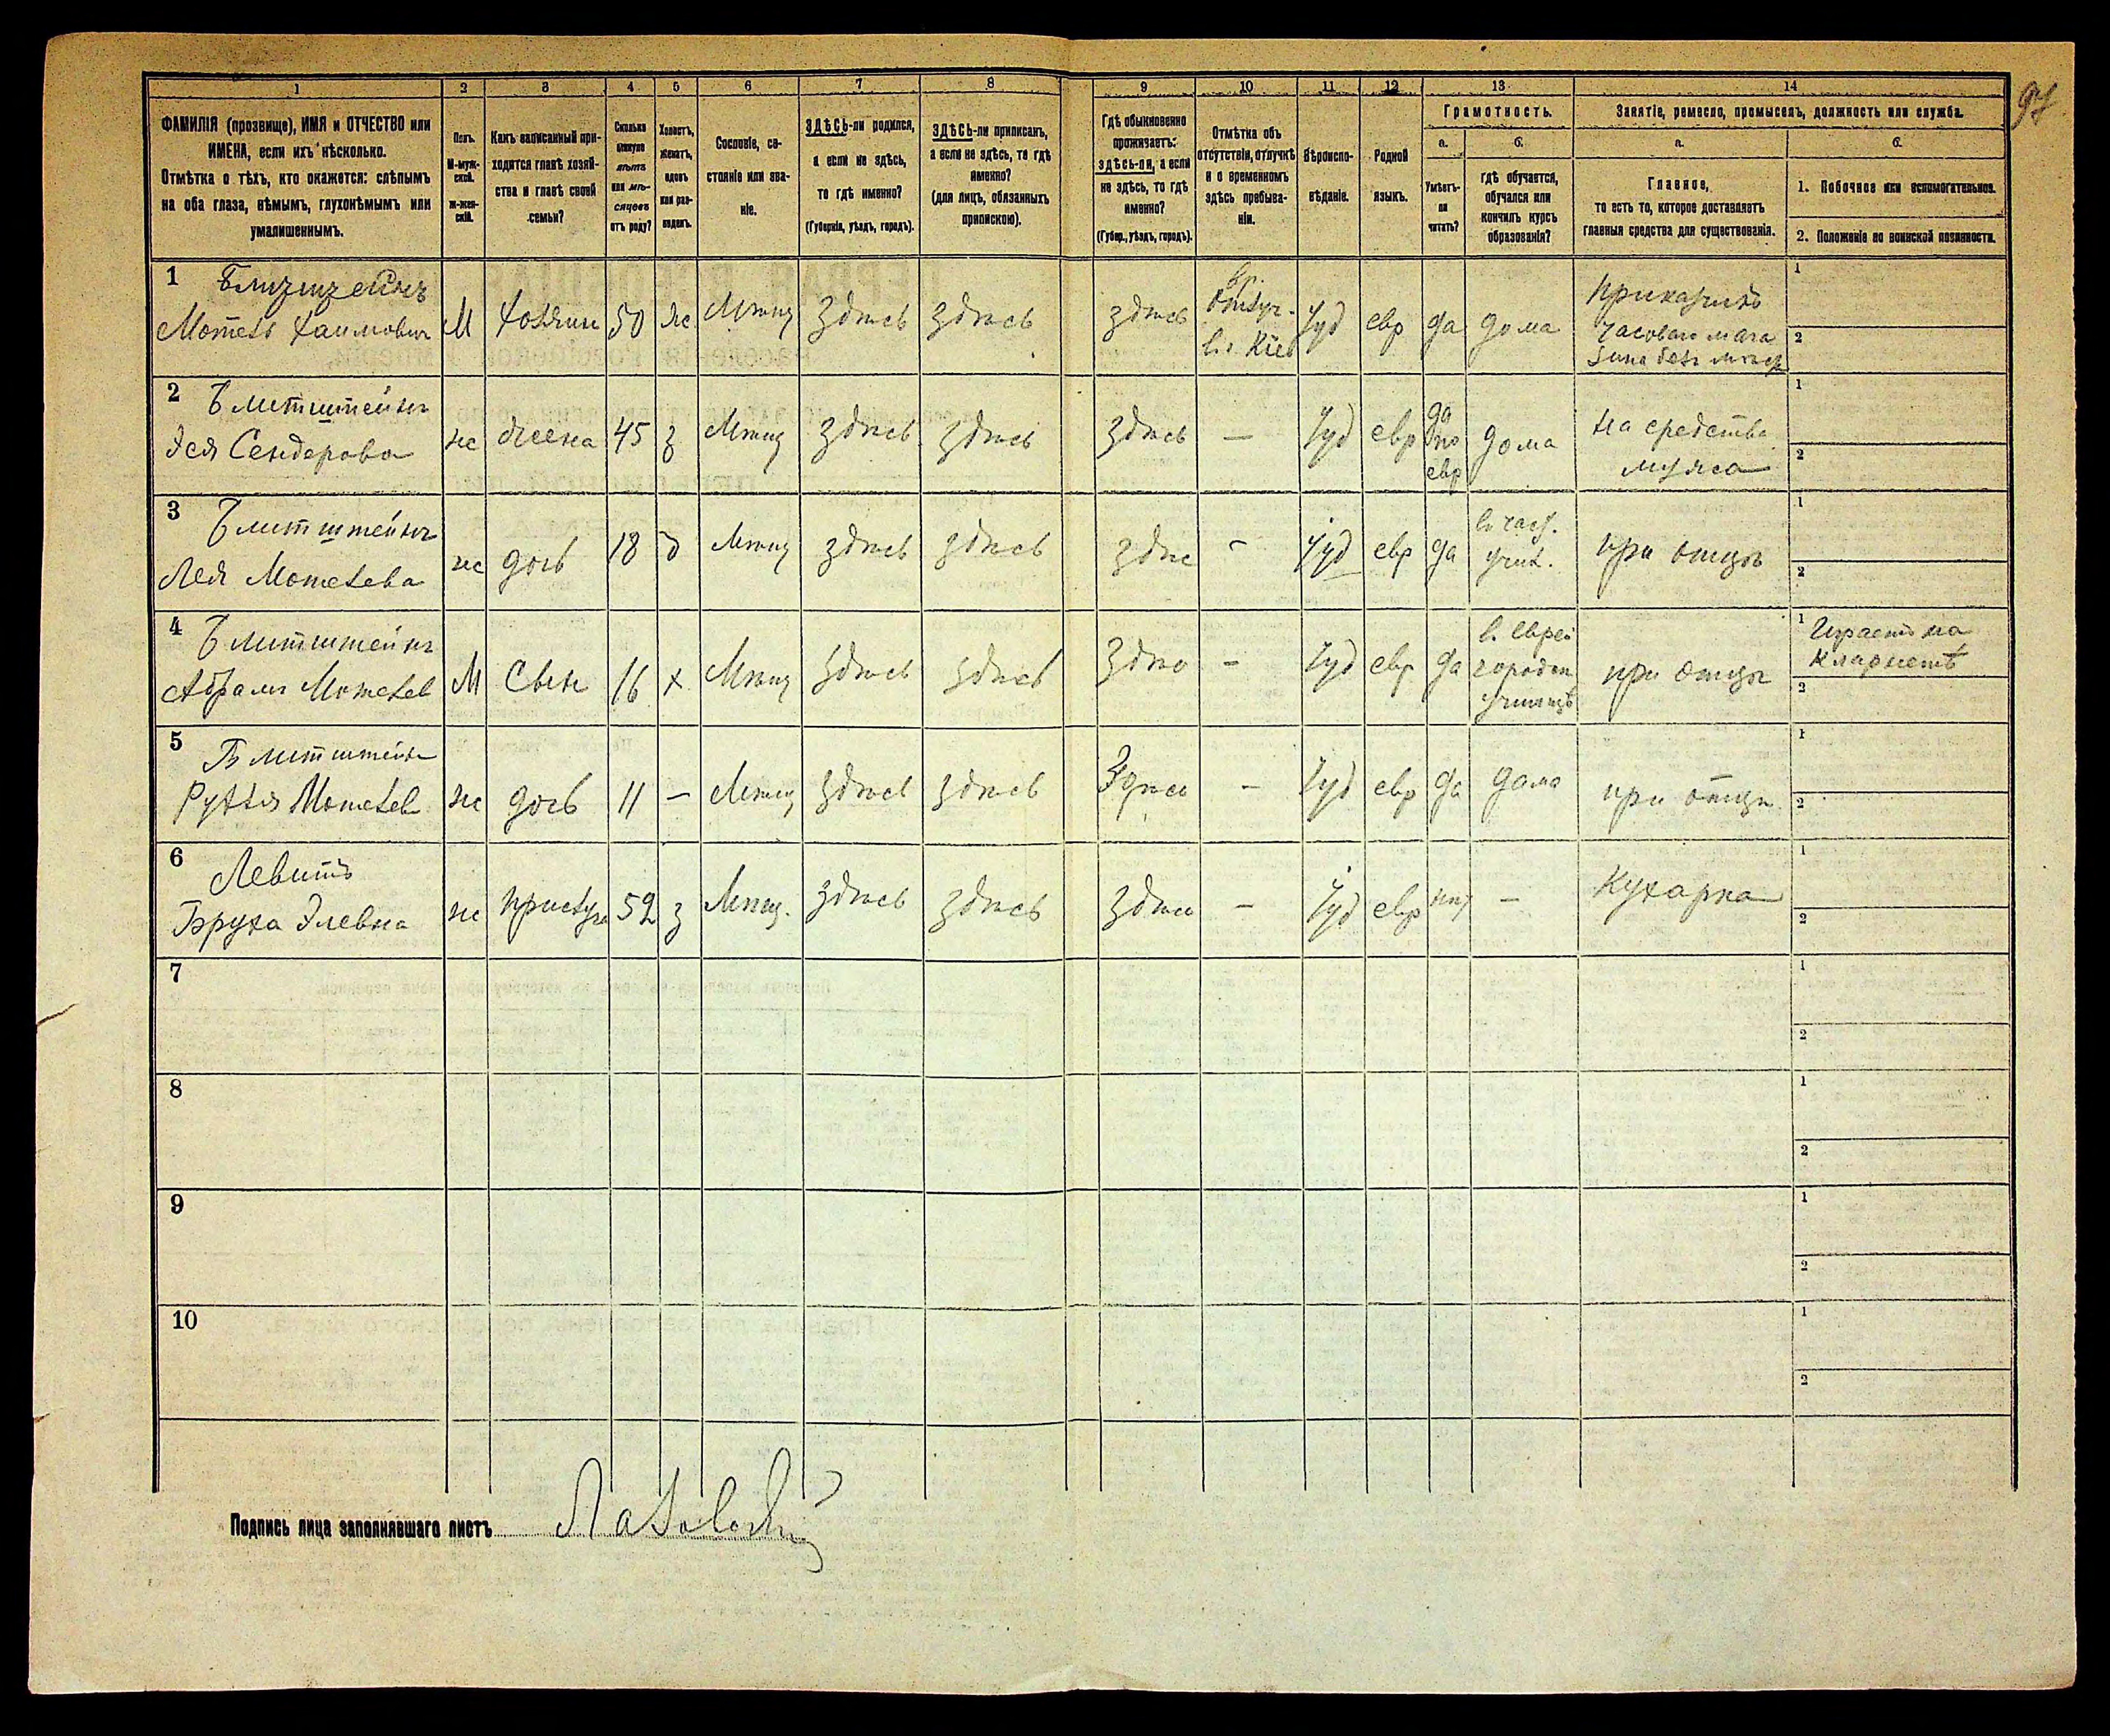 97
1 2 3 4 5 6 7 8 9 10 11 12 13 14
ФАМИЛІЯ (прозвище), ИМЯ и ОТЧЕСТВО или
ИМЕНА, если ихъ нѣсколько.
Отмѣтка о тѣхъ, кто окажется: слѣпымъ
на оба глаза, нѣмымъ, глухонѣмымъ или
умалишеннымъ.
Полъ.
М-муж-
ской.
ж-жен-
скій.
Какъ записанный при-
ходится главѣ хозяй-
ства и главѣ своей
семьи?
Сколько
минуло
лѣтъ
или мѣ-
сяцевъ
отъ роду?
Холостъ,
женатъ,
вдовъ
или раз-
веденъ.
Сословіе, со-
стояніе или зва-
ніе.
ЗДѢСЬ-ли родился,
а если не здѣсь,
то гдѣ именно?
(Губернія, уѣздъ, городъ).
ЗДѢСЬ-ли приписанъ,
а если не здѣсь, то гдѣ
именно?
(для лицъ, обязанныхъ
припискою).
Гдѣ обыкновенно
проживаетъ:
здѣсь-ли, а если
не здѣсь, то гдѣ
именно?
(Губер., уѣздъ, городъ).
Отмѣтка объ
отсутствіи, отлучкѣ
и о временномъ
здѣсь пребыва-
ніи.
Вѣроиспо-
вѣданіе.
Родной
языкъ.
Грамотность.
а.
Умѣетъ-
ли
читать?
б.
гдѣ обучается,
обучался или
кончилъ курсъ
образованія?
Занятіе, ремесло, промыселъ, должность или служба.
а.
Главное,
то есть то, которое доставляетъ
главныя средства для существованія.
б.
1. Побочное или вспомогательное.
2. Положеніе по воинской повинности.
1
Мошевъ Хаимович
М
Хозяин
50
ж
Мѣщ
здѣсь
здѣсь
здѣсь
Вр.
отлуч.
въ Кіев
Іуд
евр
да
дома
Приказчикъ
часоваго мага
1
2
2
Блитштейнъ
Эся Сендерова
ж
жена
45
з
Мѣщ
здѣсь
здѣсь
здѣсь
—
Іуд
евр
да
по
евр
дома
на средства
мужа
1
2
3
Блитштейнъ
Лея Мошева
ж
дочь
18
д
Мѣщ
здѣсь
здѣсь
здѣс
-
Іуд
евр
да
в част.
учил.
при отцѣ
1
2
4
Блитштейнъ
Абрамъ Мошев
М
Сынъ
16
х
Мѣщ
здѣсь
здѣсь
-
Іуд
евр
да
в. Еврей
городск
училищѣ
при отцѣ
1
Играетъ на
кларнетѣ
2
5
Блитштейнъ
ж
дочь
11
—
Мѣщ
здѣсь
здѣсь
-
Іуд
евр
да
дома
при отцѣ
1
2
6
Левитъ
Бруха Элевна
ж
прислуга
52
з
Мѣщ.
здѣсь
здѣсь
здѣсь
—
Іуд
евр
нѣт
—
Кухарка
1
2
7
1
2
8
1
2
9
1
2
10
1
2
Подпись лица заполнявшаго листъ